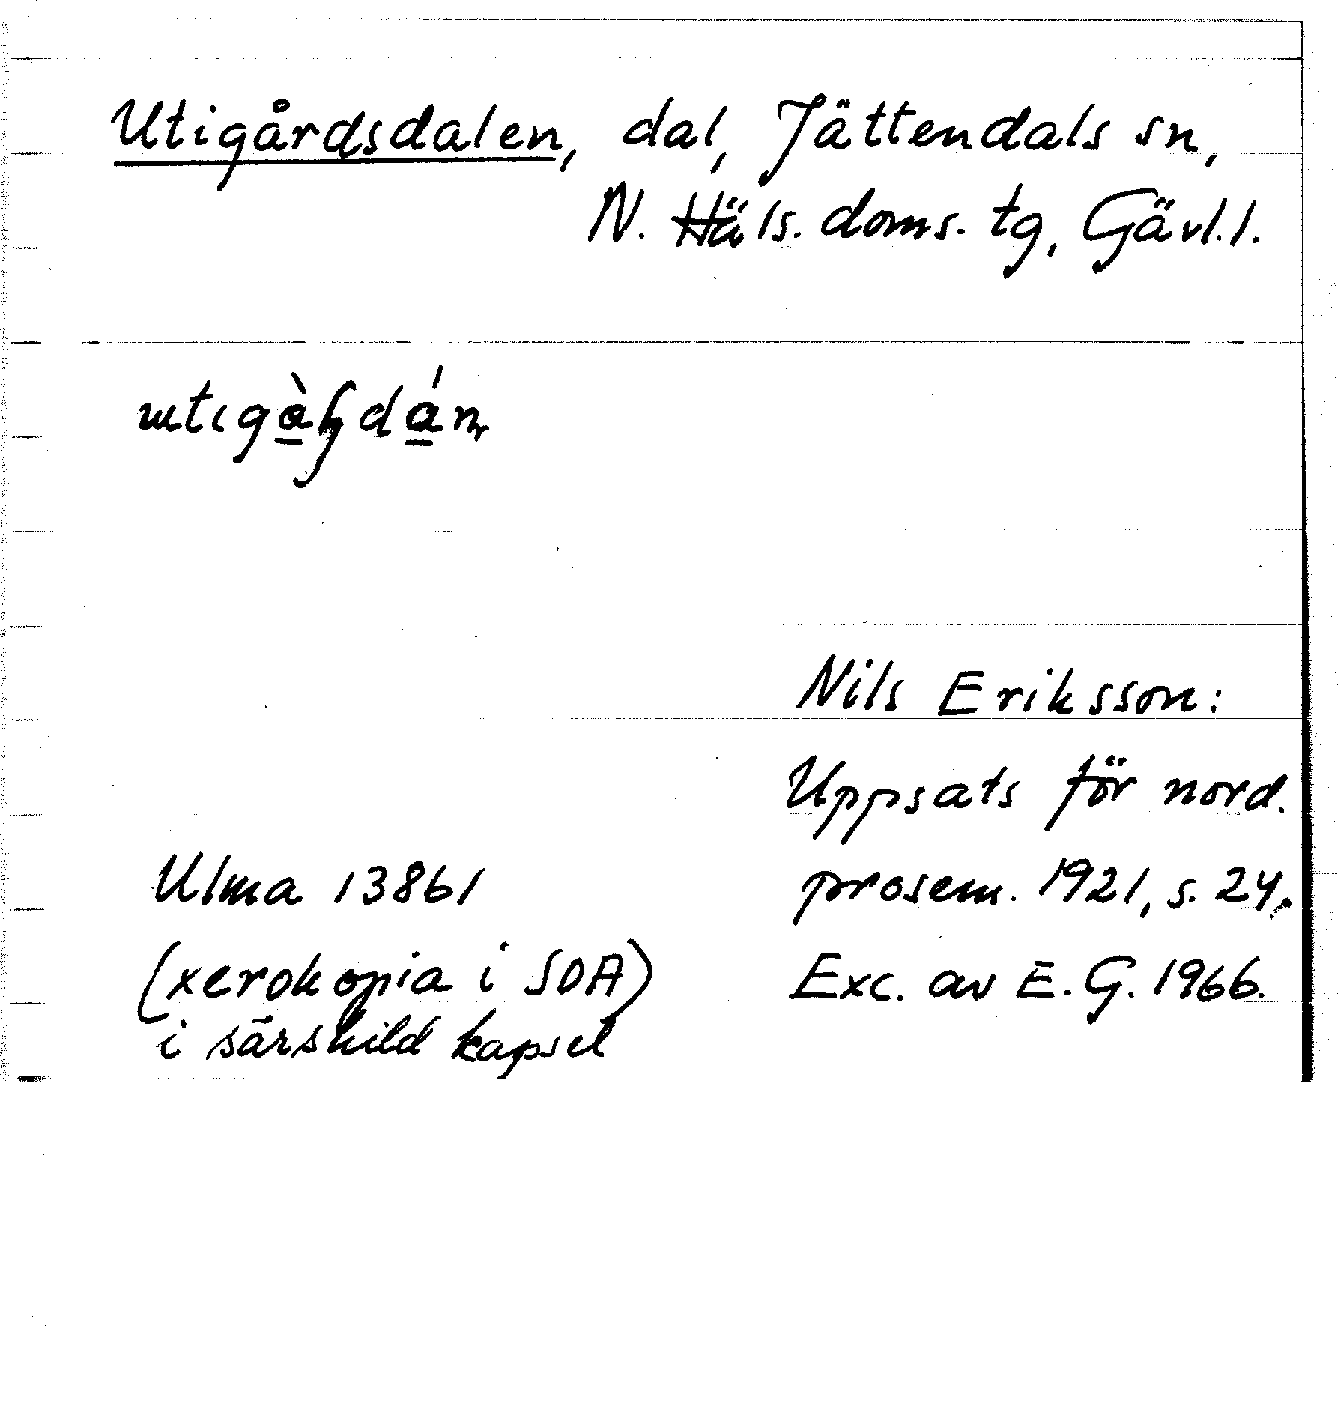 Utigårdsdalen, dal, Jättendals sn,
N. Häls. doms. tg, Gävl. l.
Nils Eriksson:
Uppsats för nord.
prosem. 1921, s. 24.
Exc. av E. G. 1966.
Ulma 13861
(xerokopia i SOA)
i särskild kapsel